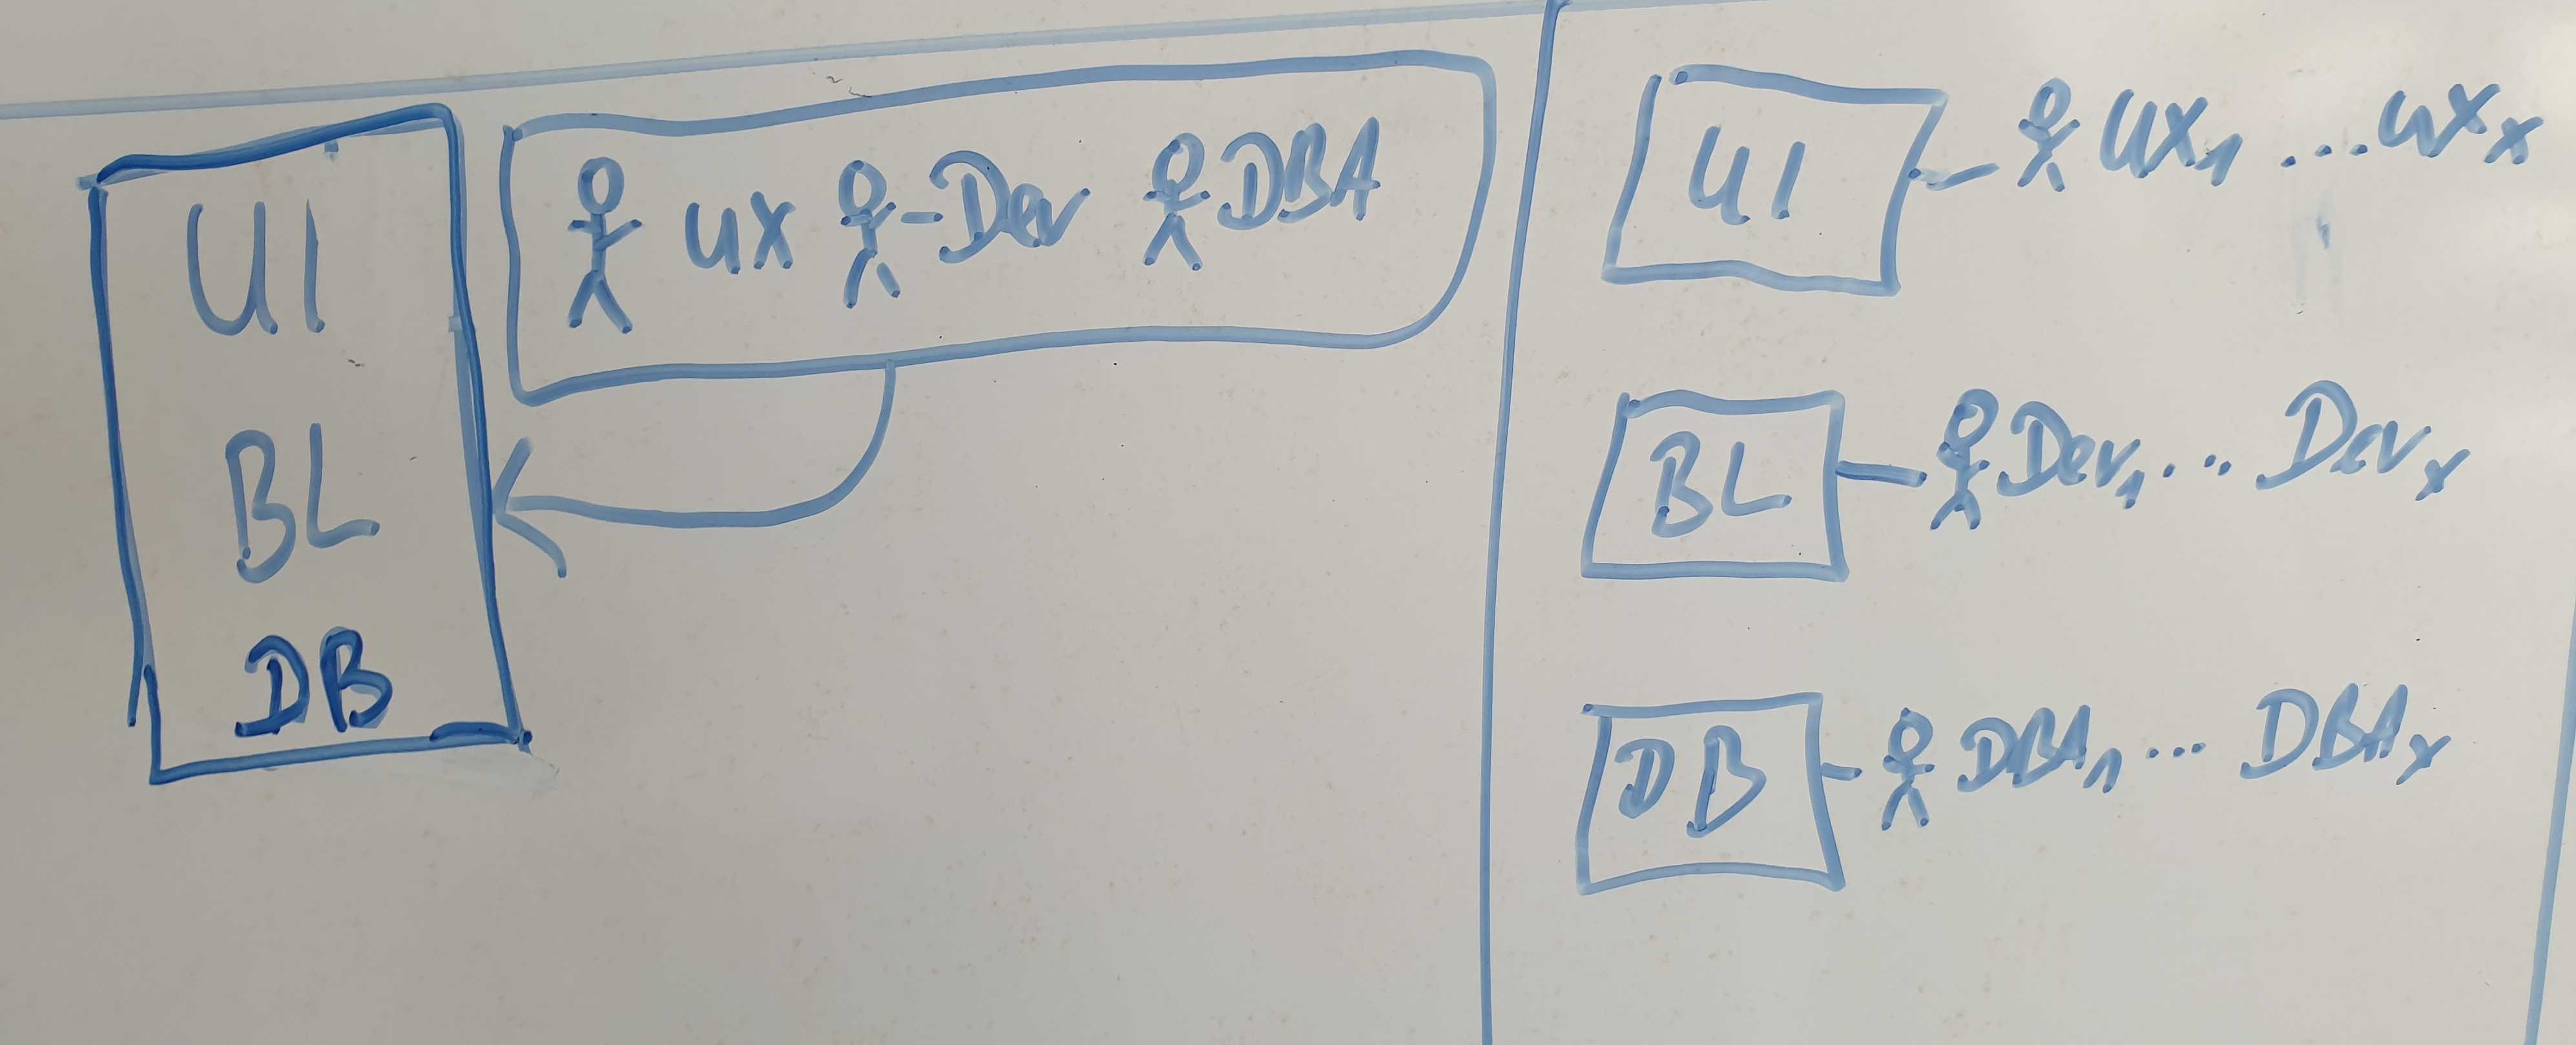 UI
BL
DB
UX -Dev DBA
UI
UX1 ... UXx
BL
Dev1 ... Devx
DB
DBA1 ... DBAx